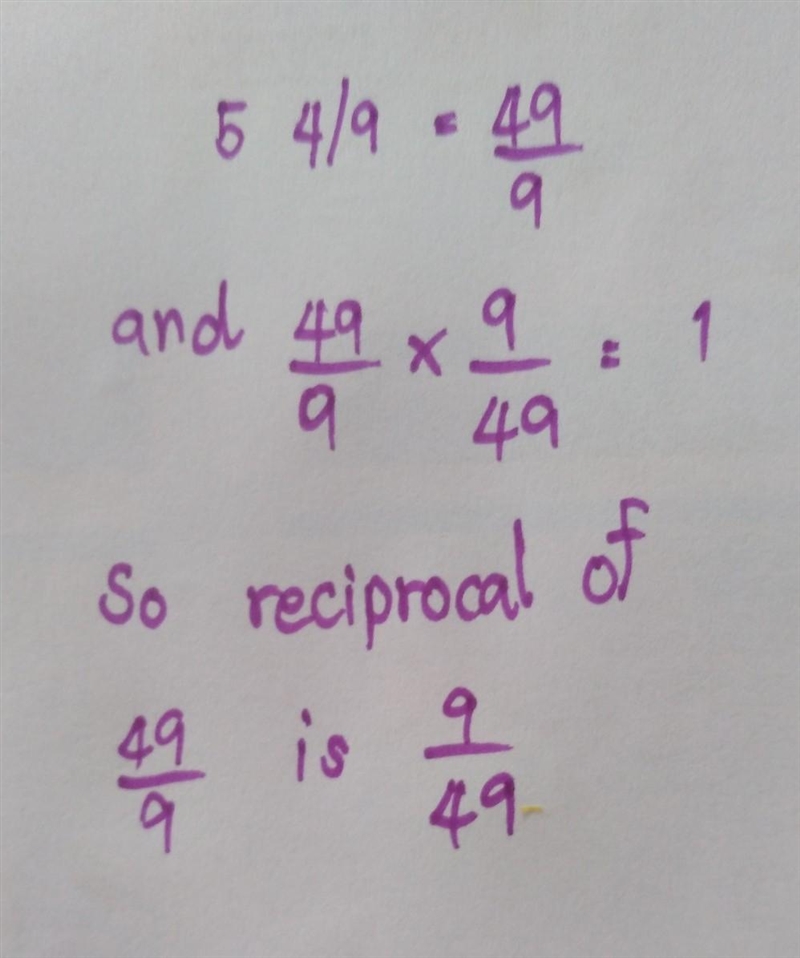 5 4/9 = 49/9
and 49/9 x 9/49 = 1
So reciprocal of
49/9 is 9/49